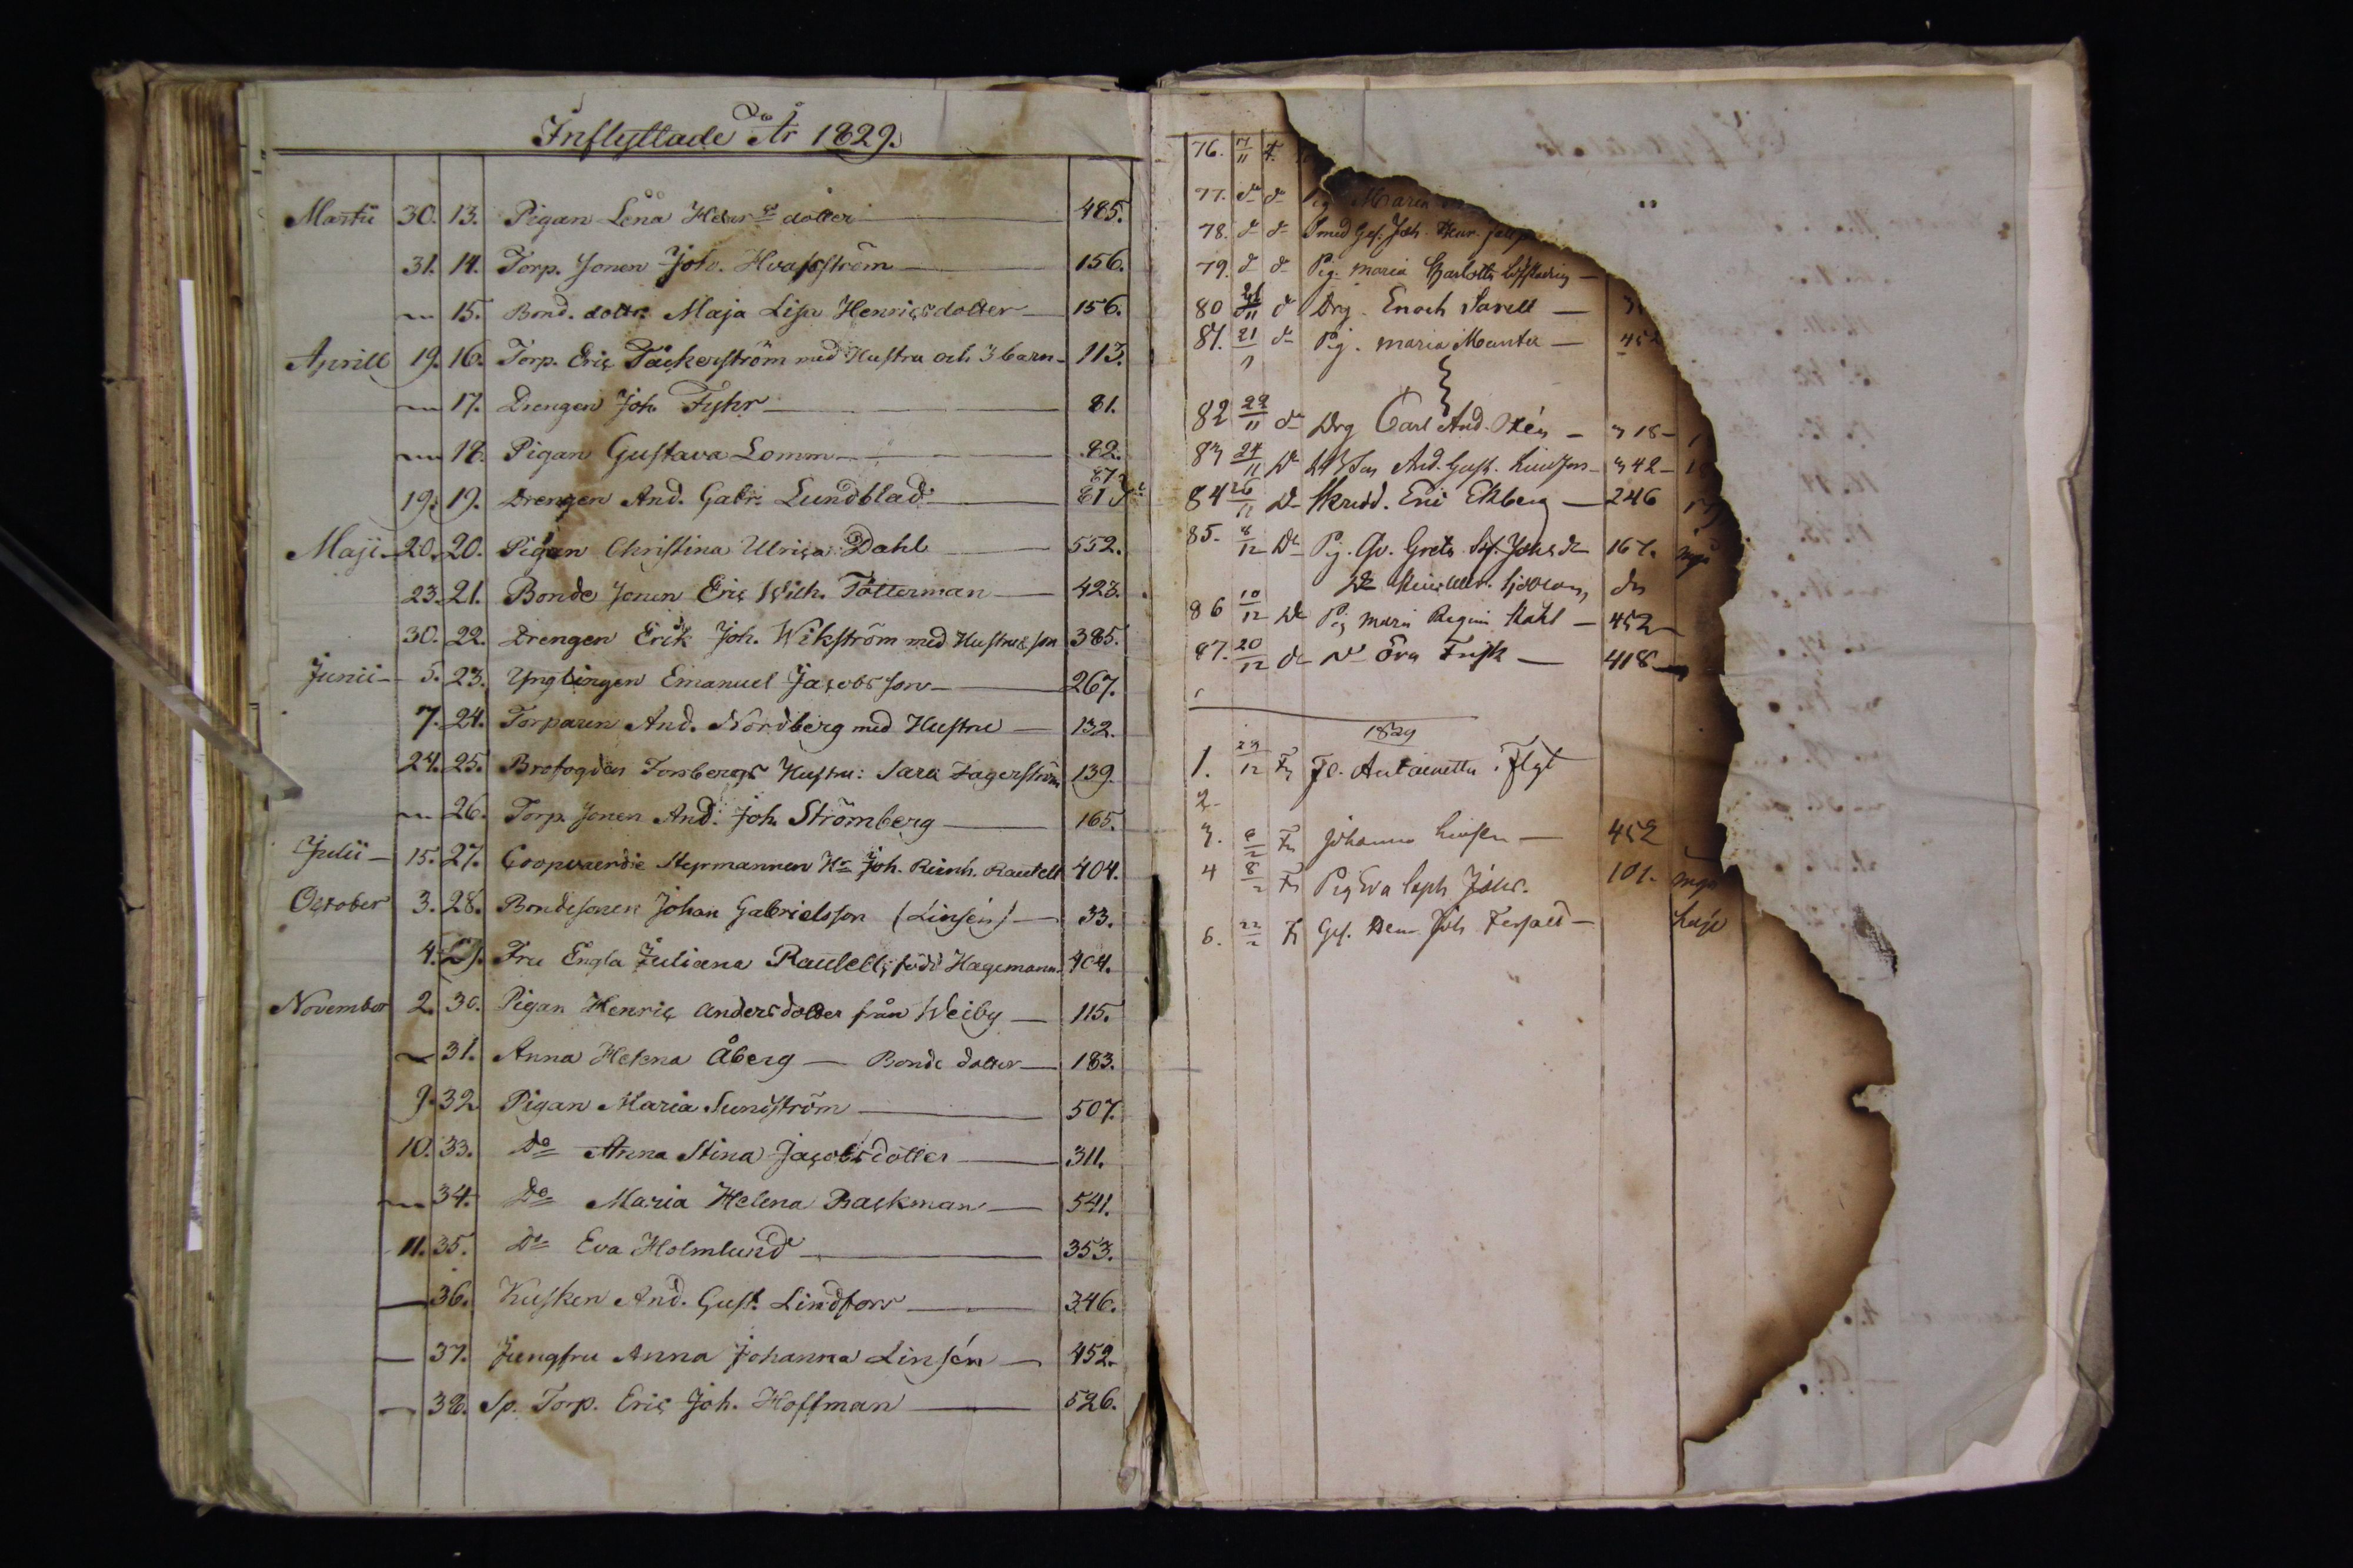 Inflyttade År 1829.
Martii 30. 13. Pigan Lena Henr:s dotter — 485.
31. 14. Torp. Sonen Joh. Hvafström — 156.
— 15. Bond. dottr. Maja Lisa Henricsdotter — 156.
Aprill 19. 16. Torp. Eric Täckerström med Hustru och 3 barn — 113.
— 17. Drengen Joh. Fyhr — 81.
— 18. Pigan Gustava Lomm — 82.
19. 19. Drengen And. Gabr. Lundblad — 81
Maji 20. 20. Pigan Christina Ulrica Dahl — 552.
23. 21. Bonde Sonen Eric Wilh. Tötterman — 423.
30. 22. Drengen Erik Joh. Wikström med Hustru & son 385.
Junii 5. 23. Ynglingen Emanuel Jacobsson — 267.
7. 24. Torparen And. Nordberg med Hustru — 132.
24. 25. Brofogden Forsbergs Hustru: Sara Fagerström 139.
— 26. Torp. Sonen And. Joh. Strömberg — 165.
Julii 15. 27. Coopvaerdie Styrmannen Hr Joh. Reinh. Rautell 404.
October 3. 28. Bondesonen Johan Gabrielsson (Linsén) — 33.
4. 29. Fru Engla Juliana Rautell, född Hagemann. 404.
November 2. 30. Pigan Henric Andersdotter från Weiby — 115.
— 31. Anna Helena Åberg — Bonde dotter — 183.
9. 32. Pigan Maria Sundström — 507.
10. 33. Do Anna Stina Jacobsdotter — 311.
— 34. Do Maria Helena Backman — 541.
11. 35. Do Eva Holmlund — 353.
— 36. Kusken And. Gust. Lindfors — 346.
— 37. Jungfru Anna Johanna Linsén — 452.
— 38. Sp. Torp. Eric Joh. Hoffman — 526.
76. 17/11
77. do do Pig Maria
78. do do Smed Ges. Joh. Henr.
79. do do Pig. Maria Charlotta
80 21/11 do Drg. Enoch Savell —
81. 21 do Pig. Maria Munter — 452
82 22/11 do Drg Carl And. — 318 —
83 24/11 Do And. Gust. Lindfors — 342 —
84 26/11 Do Skrädd. Eric Ekberg — 246
85. 8/12 Do Pig. Greta 167.
do
86 10/12 Do Pig Maria Regina Stahl — 452
87. 20/12 do Do Eva Frisk — 418
1829
1. 29/12 Fr Antoinette Flyt
2.
3. Fr Johanna Linsen — 452
4 8/2 Fr Pig Eva 101.
6. 22/2 Fr Ges. Joh.